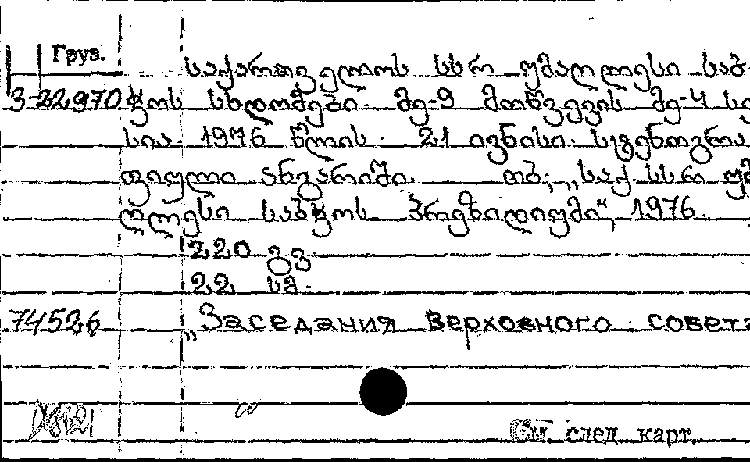 Груз.
საქართველოს სსრ უმაღლესი საბ-
3-22970 ჭოს სხდომები. მე-9 მოწვევის მე-4 სე
სია. 1976 წლის. 21 ივნისი. სტენოგრა
ფიული ანგარიში. თბ., „საქ. სსრ უმ
ღლესი საბჭოს პრეზიდიუმი“, 1976.
220 გვ.
22 სმ.
74526 „Заседания Верховного совета
См. след. карт.